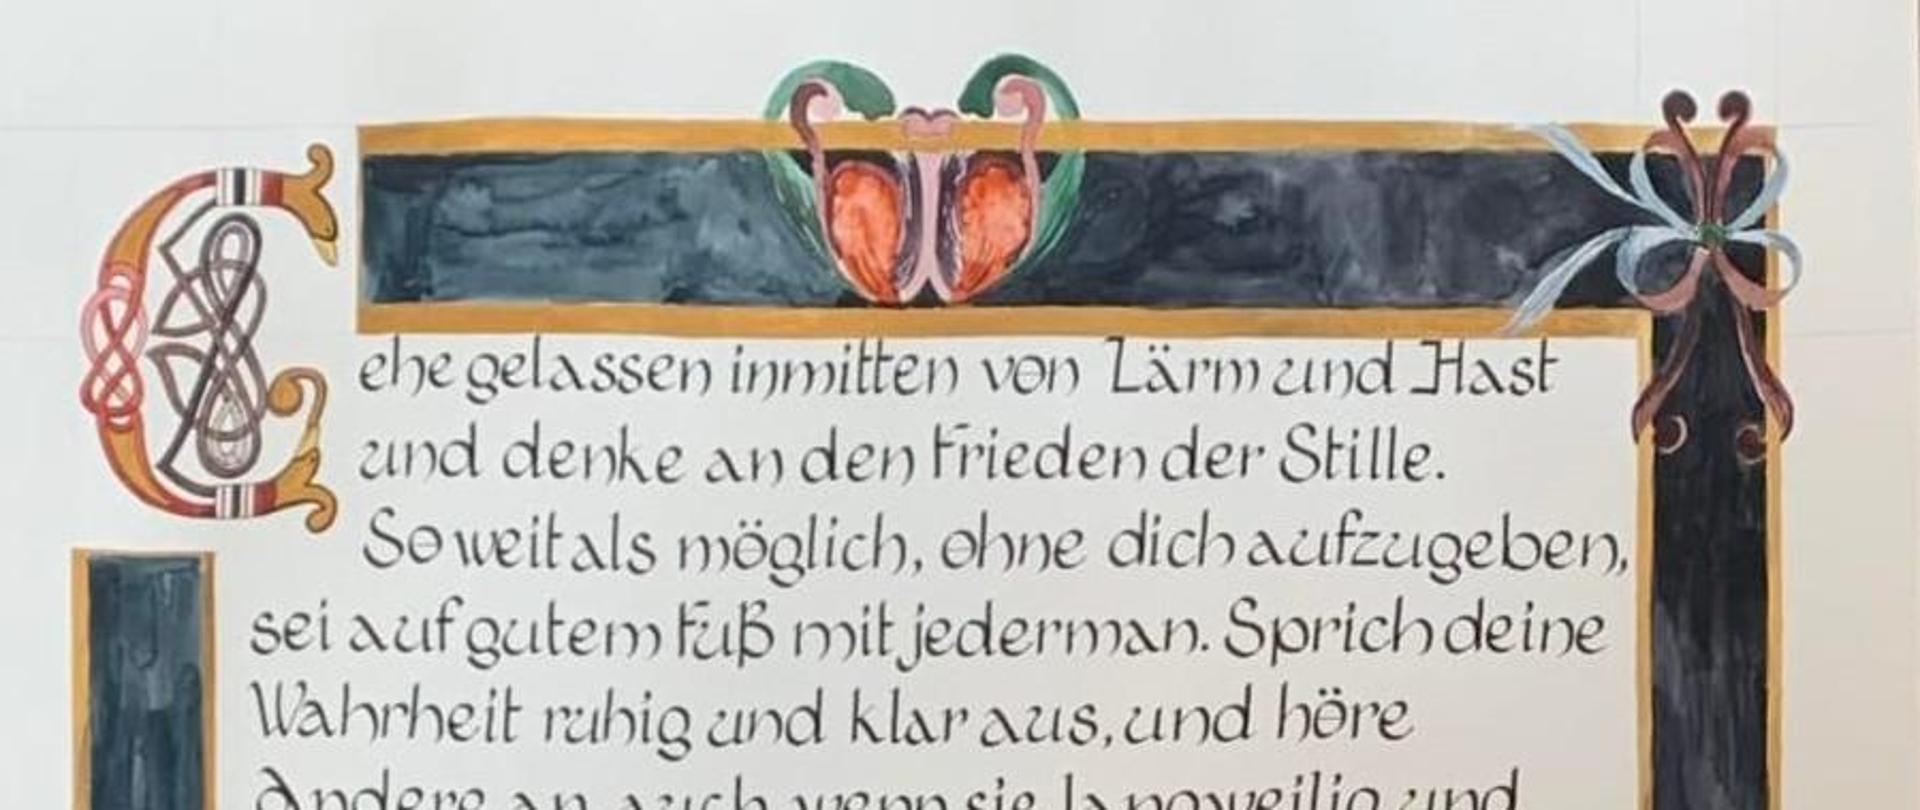 Gehe gelassen inmitten von Lärm und Hast
und denke an den Frieden der Stille.
So weit als möglich, ohne dich aufzugeben,
sei auf gutem Fuß mit jederman. Sprich deine
Wahrheit ruhig und klar aus, und höre
Andere an, auch wenn sie langweilig und